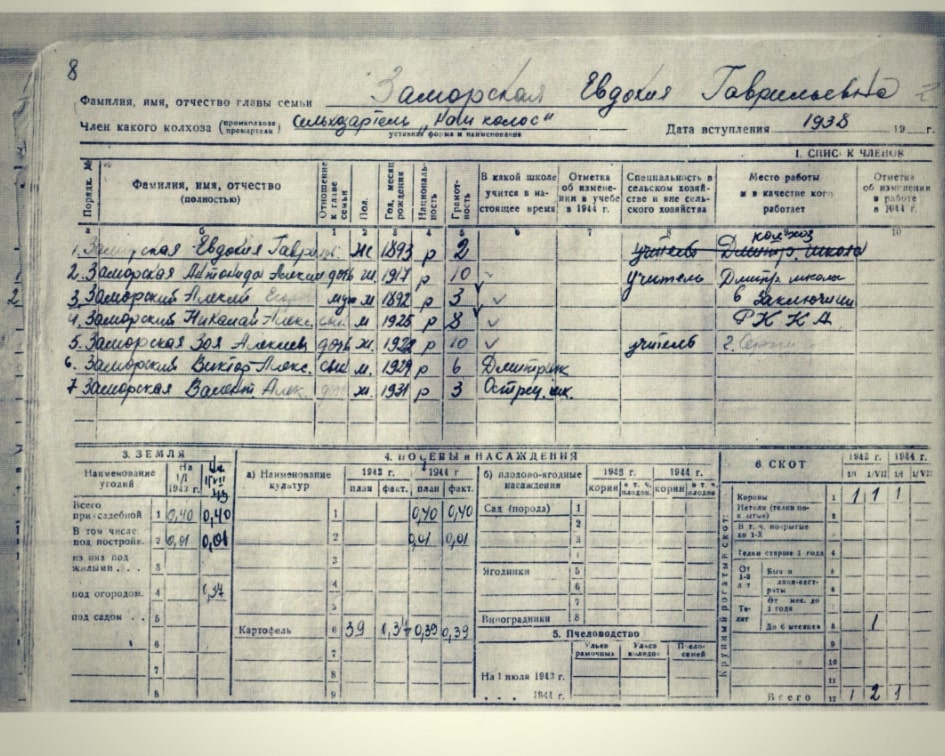 8
Фамилия, имя, отчество главы семьи Заморская Евдокия Гавриловна
Член какого колхоза (промколхоза промартели) Сельхозартель „Наш колос"
уставная форма и наименование
Дата вступления 1938 19 г.
1. СПИСОК ЧЛЕНОВ
Порядк. №
Фамилия, имя, отчество (полностью)
Отношение к главе семьи
Пол.
Год, месяц рождения
Националь-ность
Грамот-ность
В какой школе учится в на-стоящее время
Отметка об измене-нии в учебе в 1944 г.
Специальность в сельском хозяй-стве и вне сель-ского хозяйства
Место работы и в качестве кого работает
Отметка об изменении в работе в 1944 г.
а б 1 2 3 4 5 6 7 8 10
колхоз
1. Заморская Евдокия Гаврил. Ж 1893 р 2 учитель Дмитр. школа
2. Заморская Алексан дочь ж. 1917 р 10 учитель Дмитр. школа
3. Заморский Алексей муж м 1892 р 3 в заключении
4. Заморский Николай Алекс. сын м 1925 р 8 РККА
5. Заморская Зоя Алексеев дочь ж. р 10 учитель г.
6. Заморский Виктор Алекс. сын м. 1929 р 6
7 Заморская Алек. ж. 1931 р 3 Острец. шк.
3. ЗЕМЛЯ
Наименование угодий
На 1/I 1943 г.
Всего приусадебной 1 0,40 0,40
В том числе: под постройк. 2 0,01 0,01
из них под жилыми . . . 3
под огородом. 4 0,37
под садом . . 5
6
7
8
4. ПОСЕВЫ и НАСАЖДЕНИЯ
а) Наименование культур
1943 г. 1944 г.
план факт. план факт.
1 0,40 0,40
2 0,01 0,01
3
4
5
Картофель 6 39 0,37 0,39 0,39
7
8
9
б) плодово-ягодные насаждения
1943 г. 1944 г.
корни в т. ч. плодов. корни в т. ч. плодов
Сад (порода) 1
2
3
Ягодники 5
6
7
Виноградники 8
5. Пчеловодство
Ульев рамочных
Ульев колодо.
Пчело-семей
На 1 июля 1943 г.
. . . 1944 г.
6. СКОТ
1943 г. 1944 г.
1/I 1/VII 1/I 1/VII
Крупный рогатый скот:
Коровы 1 1 1 1
Нетели (телки по-крытые) 2
В т. ч. покрытые до 1-X
Телки старше 1 года 4
От 1-2 лет
Бычки
Те-лят
От мес. до 1 года
До 6 месяцев 8 1
9
10
11
Всего 12 1 2 1